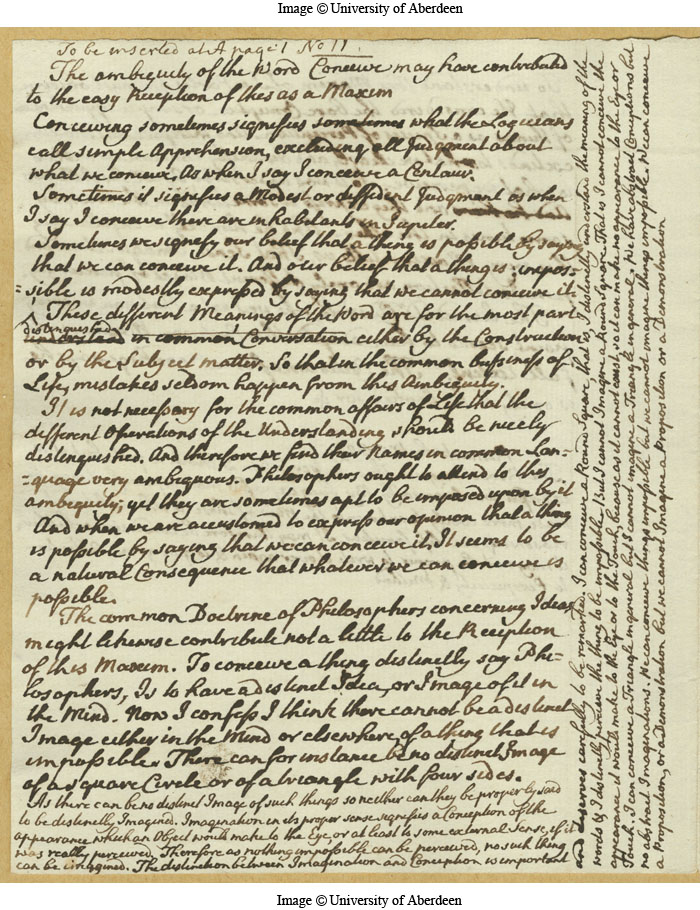 Image © University of Aberdeen
To be inserted at A page 1 No 11.
The ambiguity of the Word Conceive may have contributed
to the easy Reception of this as a Maxim
Conceiving sometimes signifies sometimes what the Logicians
call simple Apprehension, excluding all Judgment about
what we conceive, As when I say I conceive a Centaur.
Sometimes it signifies a Modest or diffident Judgment as when
I say I conceive there are inhabitants in Jupiter.
Sometimes we signify our belief that a thing is possible by saying
that we can conceive it. And our belief that a thing is impos-
=sible is modestly expressed by saying that we cannot conceive it.
These different Meanings of the Word are for the most part
distinguished
understood in common Conversation either by the Construction
or by the Subject matter. So that in the common bussiness of
Life, mistakes seldom happen from this Ambiguity.
It is not necessary for the common affairs of Life that the
different Operations of the Understanding should be nicely
distinguished. And therefore we find their Names in common Lan-
=guage very ambiguous. Philosophers ought to attend to this
ambiguity; yet they are sometimes apt to be imposed upon by it
And when we are accustomed to express our opinion that a thing
is possible by saying that we can conceive it, It seems to be
a natural Consequence that whatever we can conceive is
possible.
The common Doctrine of Philosophers concerning Ideas
might likewise contribute not a little to the Reception
of this Maxim. To conceive a thing distinctly say Phi-
losophers, Is to have a distinct Idea, or Image of it in
the Mind. Now I confess I think there cannot be a distinct
Image either in the Mind or elsewhere, of a thing that is
impossible. There can for instance be no distinct Image
of a square Circle or of a triangle with four sides.
As there can be no distinct Image of such things so neither can they be properly said
to be distinctly Imagined. Imagination in its proper sense signifies a Conception of the
appearance which an Object would make to the Eye, or at least to some external Sense, if it
was really perceived. Therefore as nothing impossible can be perceived, no such thing
can be imagined. The distinction between Imagination and Conception is important
and deserves carefully to be remarked. I can conceive a Round Square, that is, I distinctly understand the meaning of the
words & I distinctly perceive the thing to be impossible. But I cannot Imagine a Round Square. That is I cannot conceive the
appearance it would make to the Eye or to the Touch, because as it cannot exist so it can make no appearance to the Eye or
Touch. I can conceive a Triangle in general but I cannot imagine a Triangle in general. We have abstract Conceptions but
no abstract Imaginations. We can conceive things impossible but we cannot imagine things impossible. We can conceive
a Proposition, or a Demonstration but we cannot Imagine a Proposition or a Demonstration
Image © University of Aberdeen